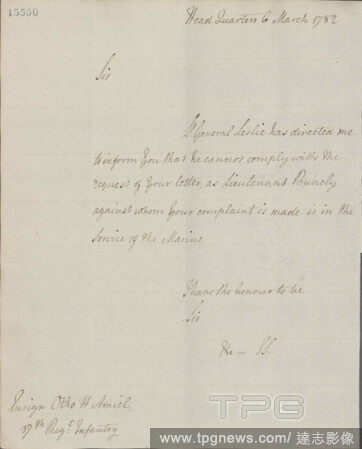 15550
Head Quarters 6 March 1782
Sir
Lt General Leslie has directed me
to inform you that he cannot comply with the
request of your letter, as Lieutenant
against whom your complaint is made is in the
Service of the Marine
I have the honour to be
Sir
&c
Ensign Otho H Amiel
17th Regt Infantry
TPG
www.tpgnews.com / 達志影像